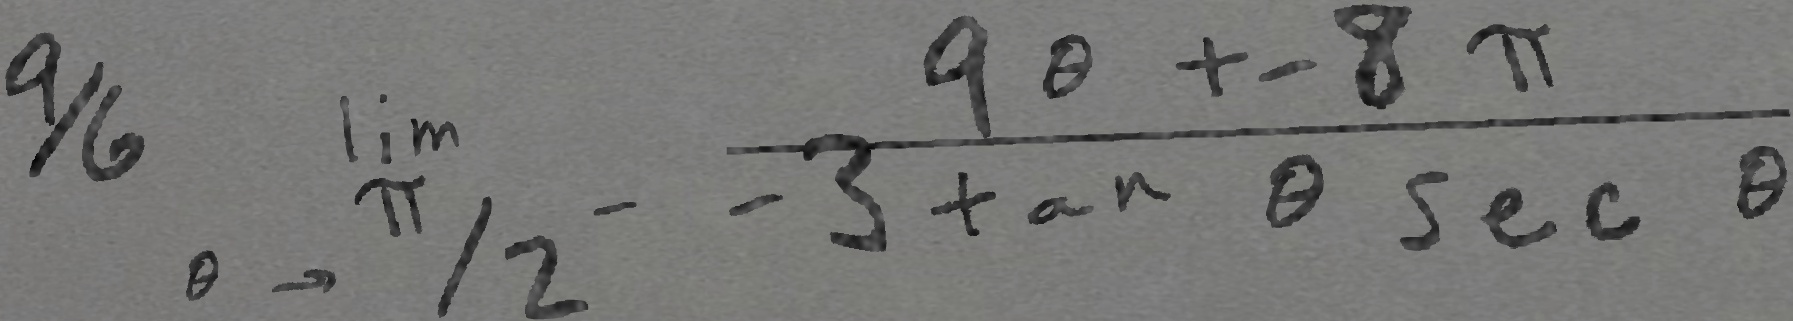 9/6 lim θ → π/2⁻ (9θ + -8π) / (-3 tan θ sec θ)